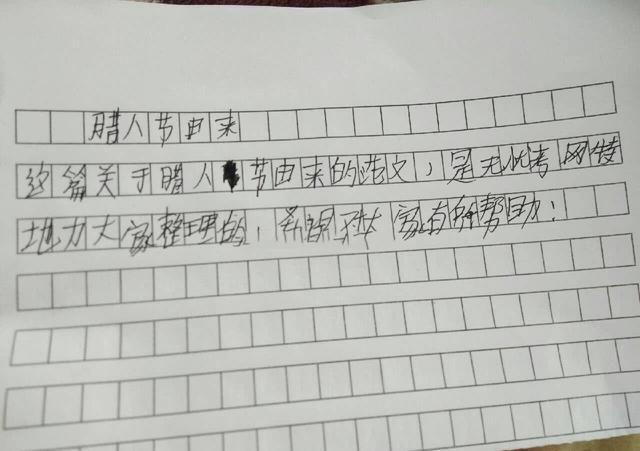 腊人节由来
这篇关于腊人节由来的范文,是无忧考网特
地力大家整理的,希望对大家有所帮助!